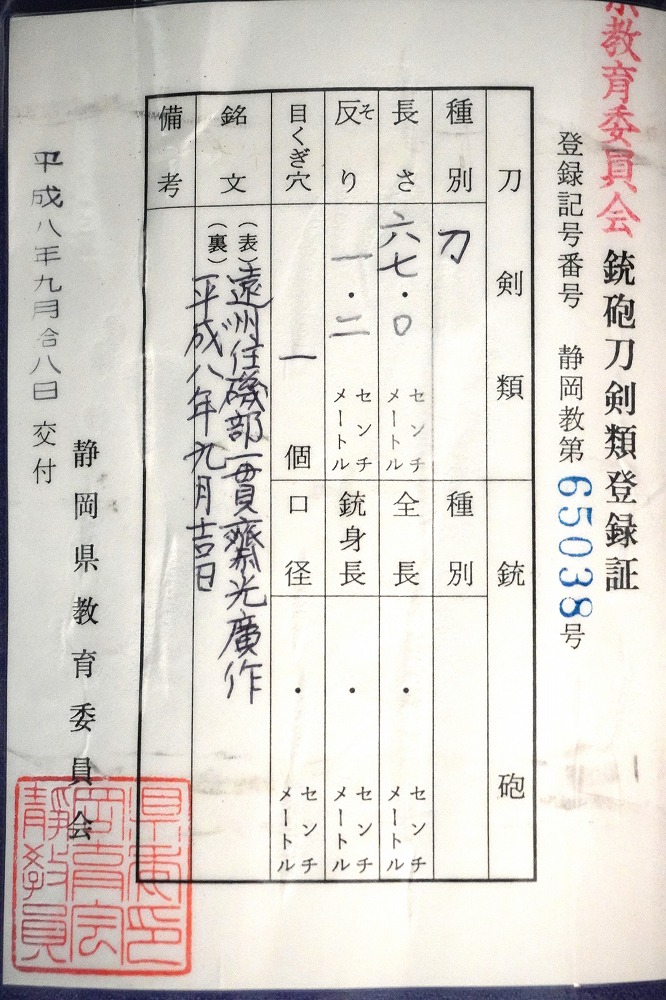 教育委員会
銃砲刀剣類登録証
登録記号番号 静岡教第65038号
刀剣類
銃砲
種別 刀
種別
長さ 六七・〇 センチメートル
全長 ・ センチメートル
反り そ 一・二 センチメートル
銃身長 ・ センチメートル
目くぎ穴 一 個
口径 ・ センチメートル
銘文
(表)遠州住磯部一貫齋光廣作
(裏)平成八年九月吉日
備考
平成八年九月合八日 交付
静岡県教育委員会